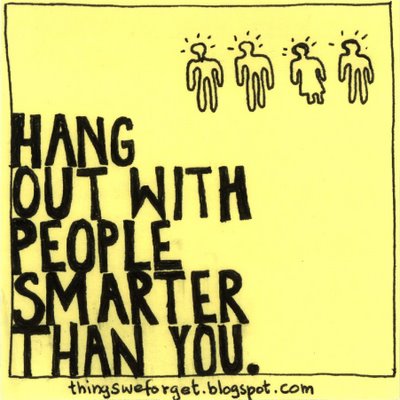 HANG
OUT WITH
PEOPLE
SMARTER
THAN YOU.
thingsweforget.blogspot.com